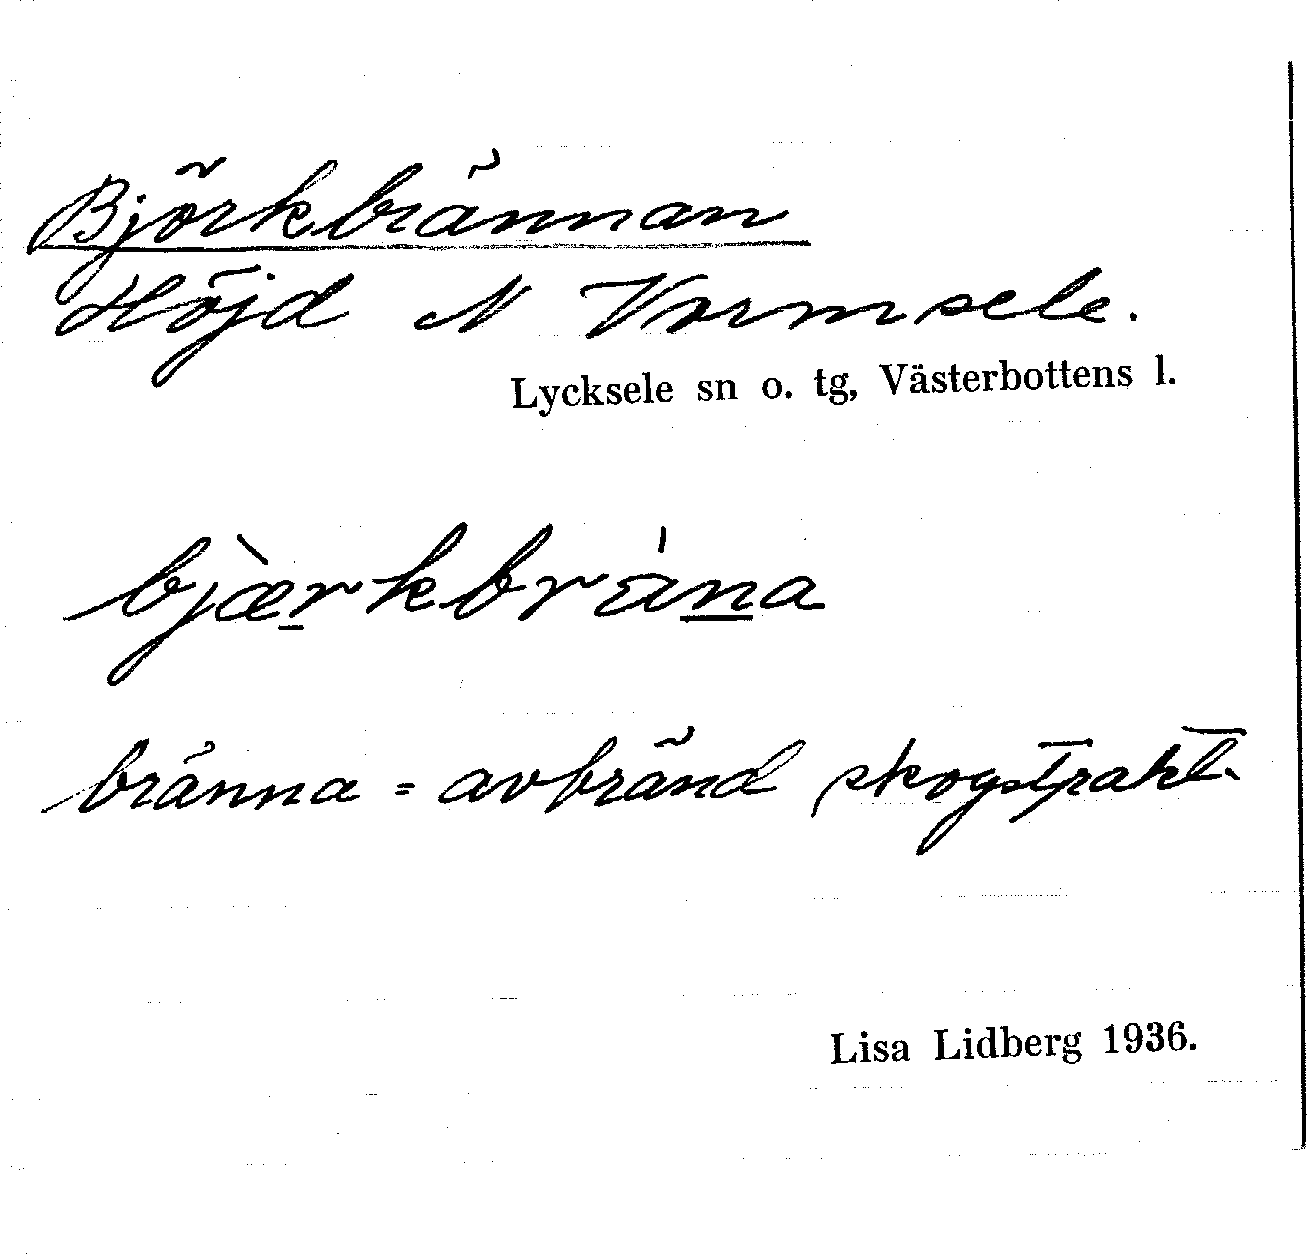 Björkbrännan
Höjd N Vormsele.
Lycksele sn o. tg, Västerbottens l.
bjæ̀rkbrána
bränna = avbränd skogstrakt.
Lisa Lidberg 1936.